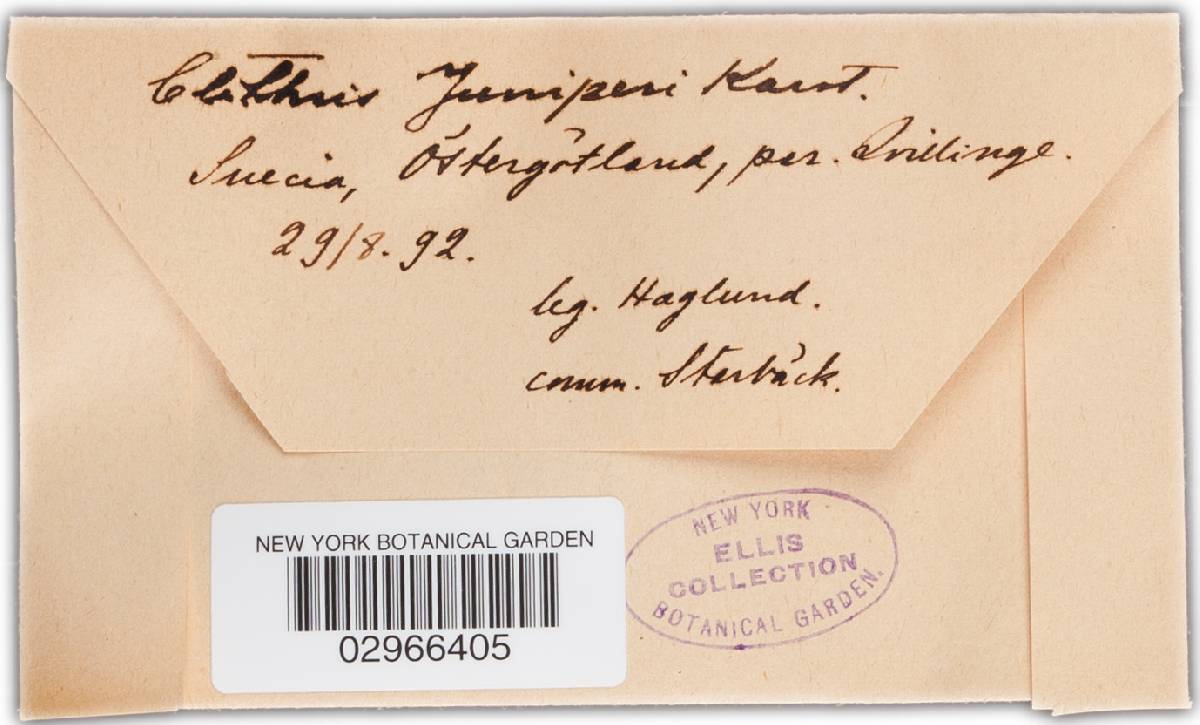 Clithris Juniperi Karst.
Suecia, Östergötland, par. Qvillinge.
29/8. 92.
leg. Haglund.
comm. Starbäck.
NEW YORK BOTANICAL GARDEN
02966405
NEW YORK
ELLIS
COLLECTION
BOTANICAL GARDEN.